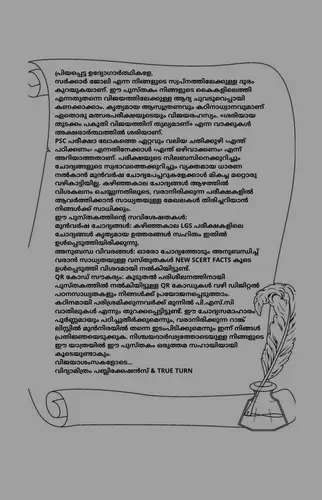 പ്രിയപ്പെട്ട ഉദ്യോഗാർത്ഥികളേ,
സർക്കാർ ജോലി എന്ന നിങ്ങളുടെ സ്വപ്നത്തിലേക്കുള്ള ദൂരം
കുറയുകയാണ്. ഈ പുസ്തകം നിങ്ങളുടെ കൈകളിലെത്തി
എന്നതുതന്നെ വിജയത്തിലേക്കുള്ള ആദ്യ ചുവടുവെപ്പായി
കണക്കാക്കാം. കൃത്യമായ ആസൂത്രണവും കഠിനാധ്വാനവുമാണ്
ഏതൊരു മത്സരപരീക്ഷയുടെയും വിജയരഹസ്യം. «ശരിയായ
തുടക്കം പകുതി വിജയത്തിന് തുല്യമാണ്» എന്ന വാക്കുകൾ
അക്ഷരാർത്ഥത്തിൽ ശരിയാണ്.
PSC പരീക്ഷാ ലോകത്തെ ഏറ്റവും വലിയ ചതിക്കുഴി ‹എന്ത്
പഠിക്കണം› എന്നതിനേക്കാൾ ‹എന്ത് ഒഴിവാക്കണം› എന്ന്
അറിയാത്തതാണ്. പരീക്ഷയുടെ സിലബസിനെക്കുറിച്ചും
ചോദ്യങ്ങളുടെ സ്വഭാവത്തെക്കുറിച്ചും വ്യക്തമായ ധാരണ
നൽകാൻ മുൻവർഷ ചോദ്യപേപ്പറുകളേക്കാൾ മികച്ച മറ്റൊരു
വഴികാട്ടിയില്ല. കഴിഞ്ഞകാല ചോദ്യങ്ങൾ ആഴത്തിൽ
വിശകലനം ചെയ്യുന്നതിലൂടെ, വരാനിരിക്കുന്ന പരീക്ഷകളിൽ
ആവർത്തിക്കാൻ സാധ്യതയുള്ള മേഖലകൾ തിരിച്ചറിയാൻ
നിങ്ങൾക്ക് സാധിക്കും.
ഈ പുസ്തകത്തിന്റെ സവിശേഷതകൾ:
മുൻവർഷ ചോദ്യങ്ങൾ: കഴിഞ്ഞകാല LGS പരീക്ഷകളിലെ
ചോദ്യങ്ങൾ കൃത്യമായ ഉത്തരങ്ങൾ സഹിതം ഇതിൽ
ഉൾപ്പെടുത്തിയിരിക്കുന്നു.
അനുബന്ധ വിവരങ്ങൾ: ഓരോ ചോദ്യത്തോടും അനുബന്ധിച്ച്
വരാൻ സാധ്യതയുള്ള വസ്തുതകൾ NEW SCERT FACTS കൂടെ
ഉൾപ്പെടുത്തി വിശദമായി നൽകിയിട്ടുണ്ട്.
QR കോഡ് സൗകര്യം: കൂടുതൽ പരിശീലനത്തിനായി
പുസ്തകത്തിൽ നൽകിയിട്ടുള്ള QR കോഡുകൾ വഴി ഡിജിറ്റൽ
പഠനസാധ്യതകളും നിങ്ങൾക്ക് പ്രയോജനപ്പെടുത്താം.
കഠിനമായി പരിശ്രമിക്കുന്നവർക്ക് മുന്നിൽ പി.എസ്.സി
വാതിലുകൾ എന്നും തുറക്കപ്പെട്ടിട്ടുണ്ട്. ഈ ചോദ്യസമാഹാരം
പൂർണ്ണമായും പഠിച്ചുതീർക്കുമെന്നും, വരാനിരിക്കുന്ന റാങ്ക്
ലിസ്റ്റിൽ മുൻനിരയിൽ തന്നെ ഇടംപിടിക്കുമെന്നും ഇന്ന് നിങ്ങൾ
പ്രതിജ്ഞയെടുക്കുക. നിശ്ചയദാർഢ്യത്തോടെയുള്ള നിങ്ങളുടെ
ഈ യാത്രയിൽ ഈ പുസ്തകം ഒരുത്തമ സഹായിയായി
കൂടെയുണ്ടാകും.
വിജയാശംസകളോടെ...
വിദ്യാമിത്രം പബ്ലിക്കേഷൻസ് & TRUE TURN